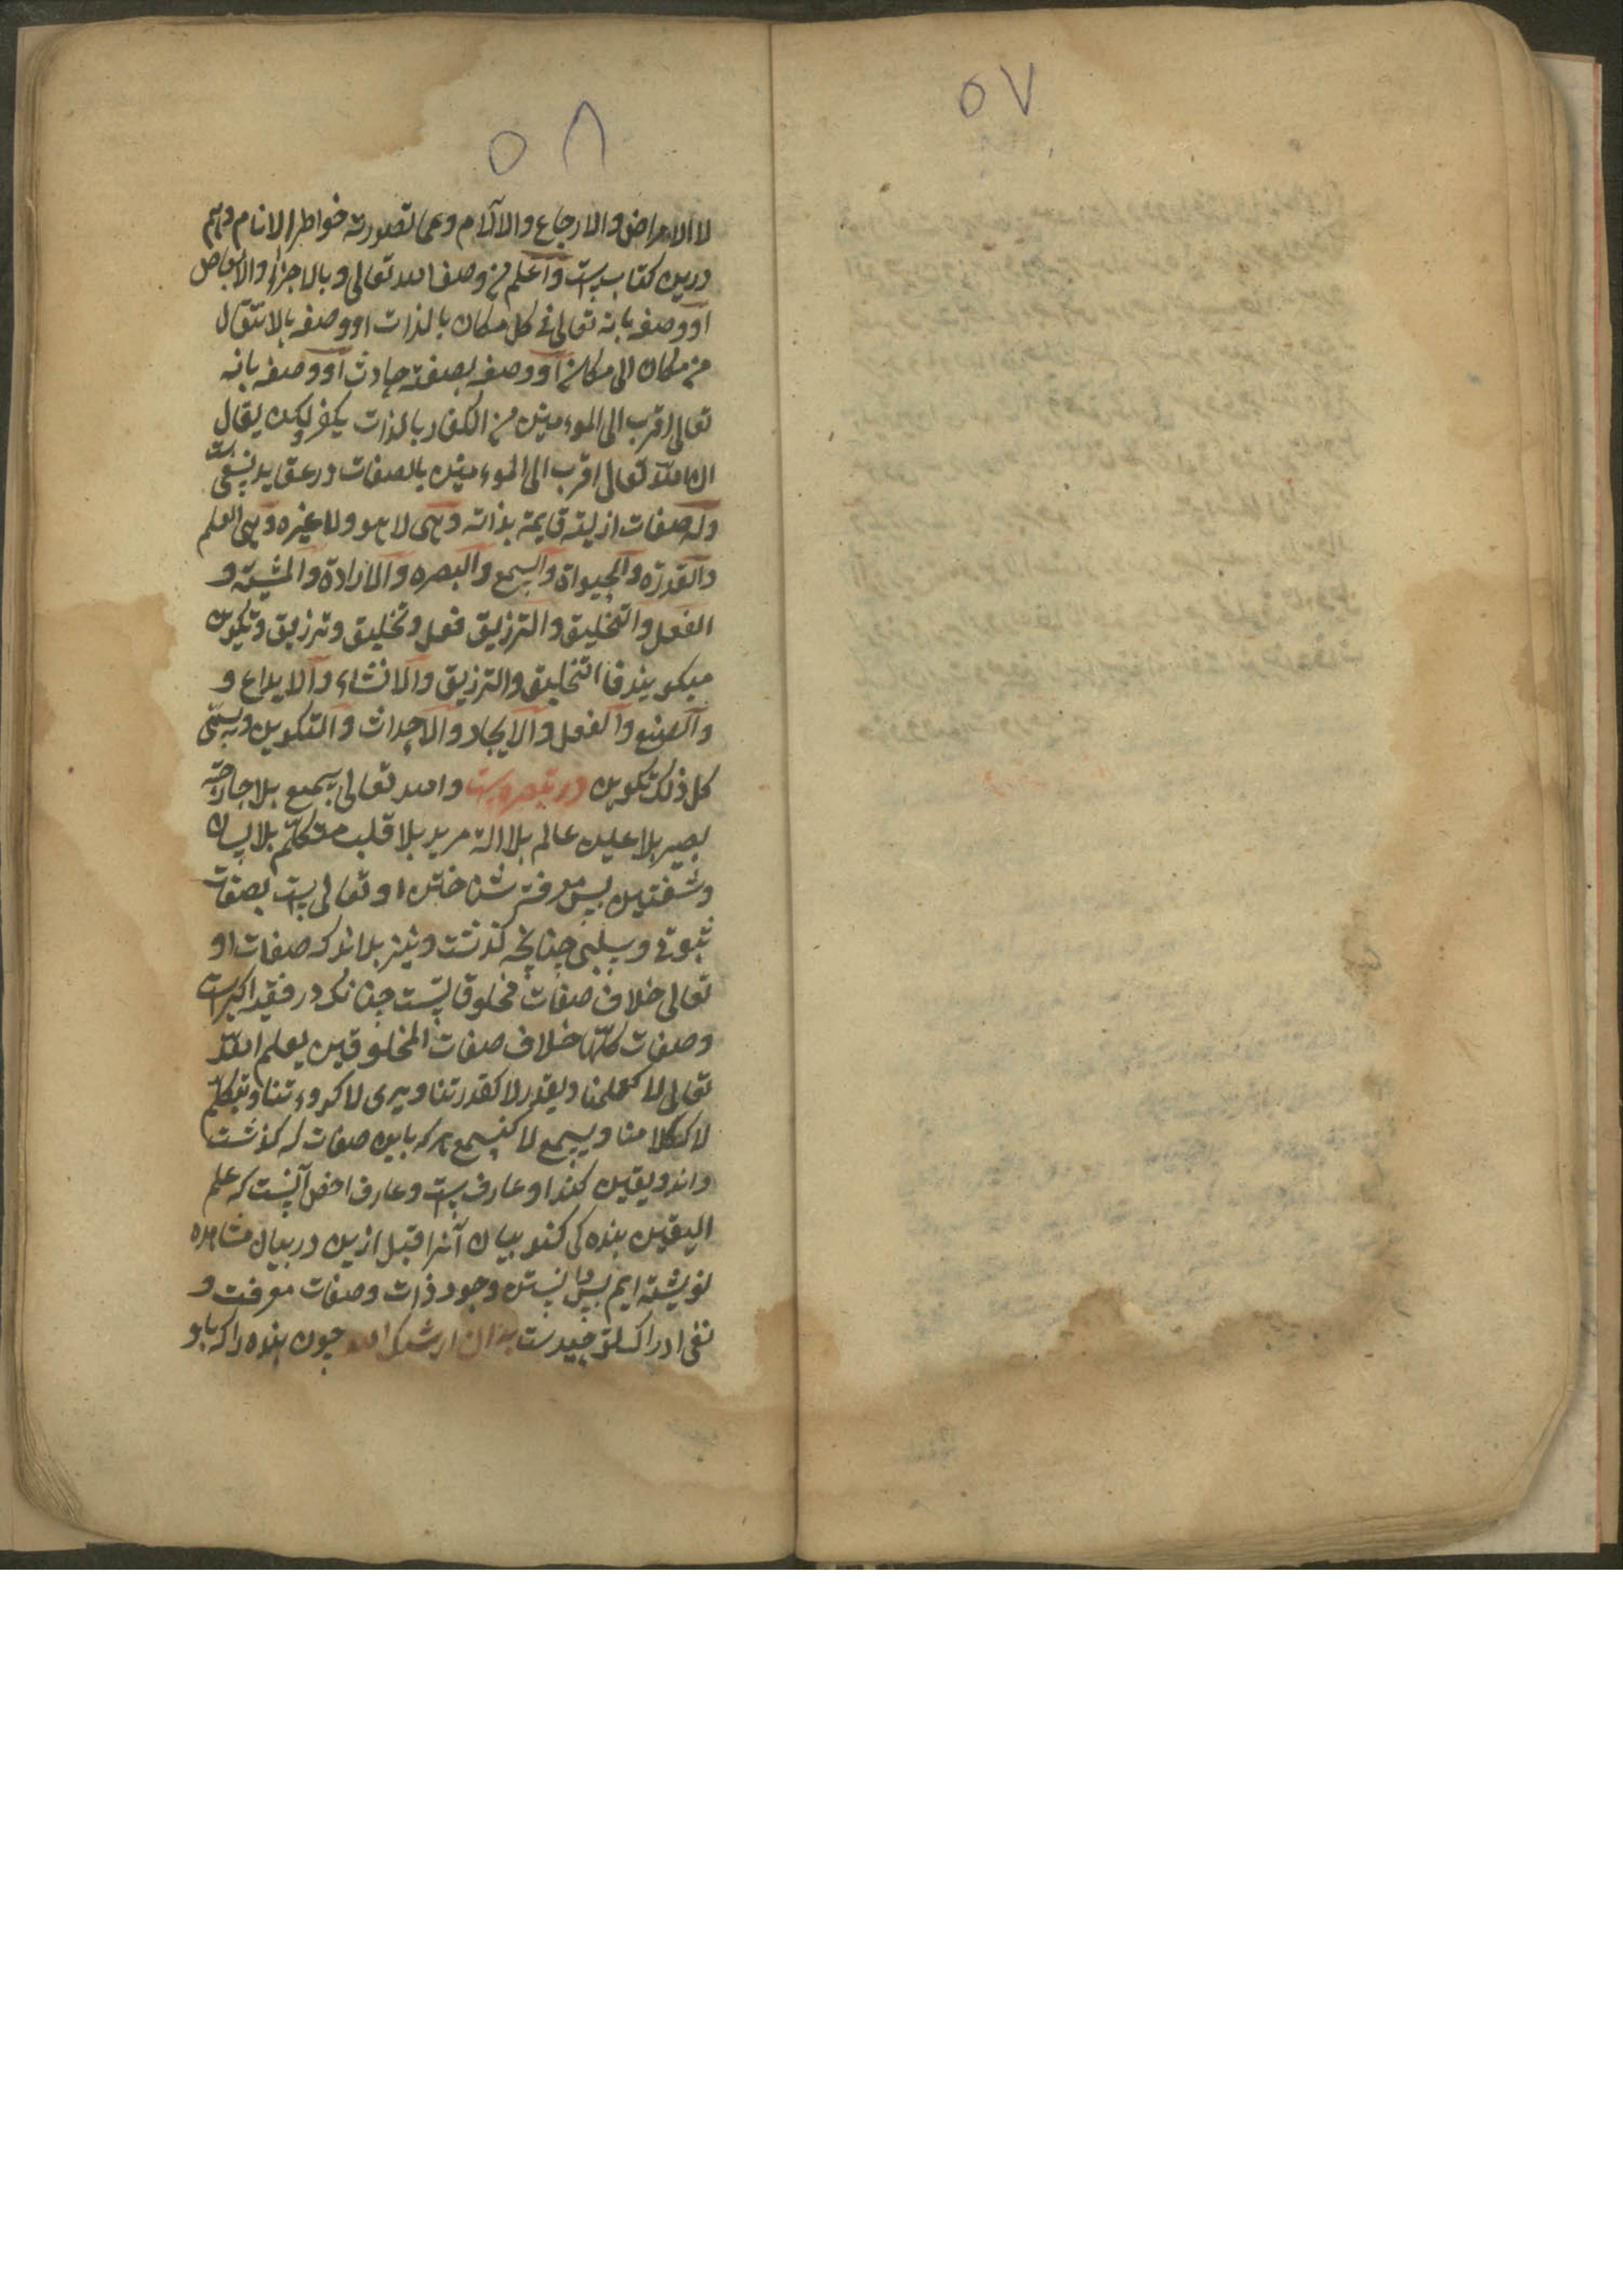 ۵۷
۵۸
لا الامراض والاوجاع والآلام وعما تصورته خواطر الانام وهم
درین کتاب است واعلم من وصف الله تعالی و بالاجزاء والابعاض
او وصفه بانه تعالی فی کل مکان بالذات او وصفه بالانتقال
من مکان الی مکان او وصفه بصفته حادث او وصفه بانه
تعالی اقرب الی الموءمنین من الکفار بالذات یکفر ولکن یقال
ان الله تعالی اقرب الی الموءمنین بالصفات در عقاید نسفی است
وله صفات ازلیته قایمة بذاته وهی لا هو ولا غیره وهی العلم
والقدرة والحیواة والسمع والبصره والارادة والمشیة و
الفعل والتخلیق والترزیق فعل و تخلیق و ترزیق و تکوین
میکویند فا التخلیق والترزیق والانشاء والابداع و
والصنع والفعل والایجاد والاحداث والتکوین ویسمی
کل ذلک تکوین در تبصره است والله تعالی سمیع بلا جارحة
بصیر بلا عین عالم بلا الة مرید بلا قلب متکلم بلا لسان
وشفتین پس معرفة شناختن او تعالی است بصفات
ثبوتی و سلبی چنانچه کذشت و نیز بداند که صفات او
تعالی خلاف صفات مخلوقاتست چنانکه در فقه اکبر است
وصفات کلها خلاف صفات المخلوقین یعلم الله
تعالی لا کعلمنا ویقدر لا کقدرتنا ویری لا کروءتنا ویتکلم
لا ککلامنا ویسمع لا کسمع هر که باین صفات که کذشت
داند و یقین کند او عارف است و عارف اخص آنست که علم
الیقین بنده کی کند بیان آنرا قبل ازین در بیان مشاهده
نویشته ایم پس دانستن وجود ذات وصفات معرفت و
نفی ادراک توحیدست بدان ارشدک الله چون بنده را که با و